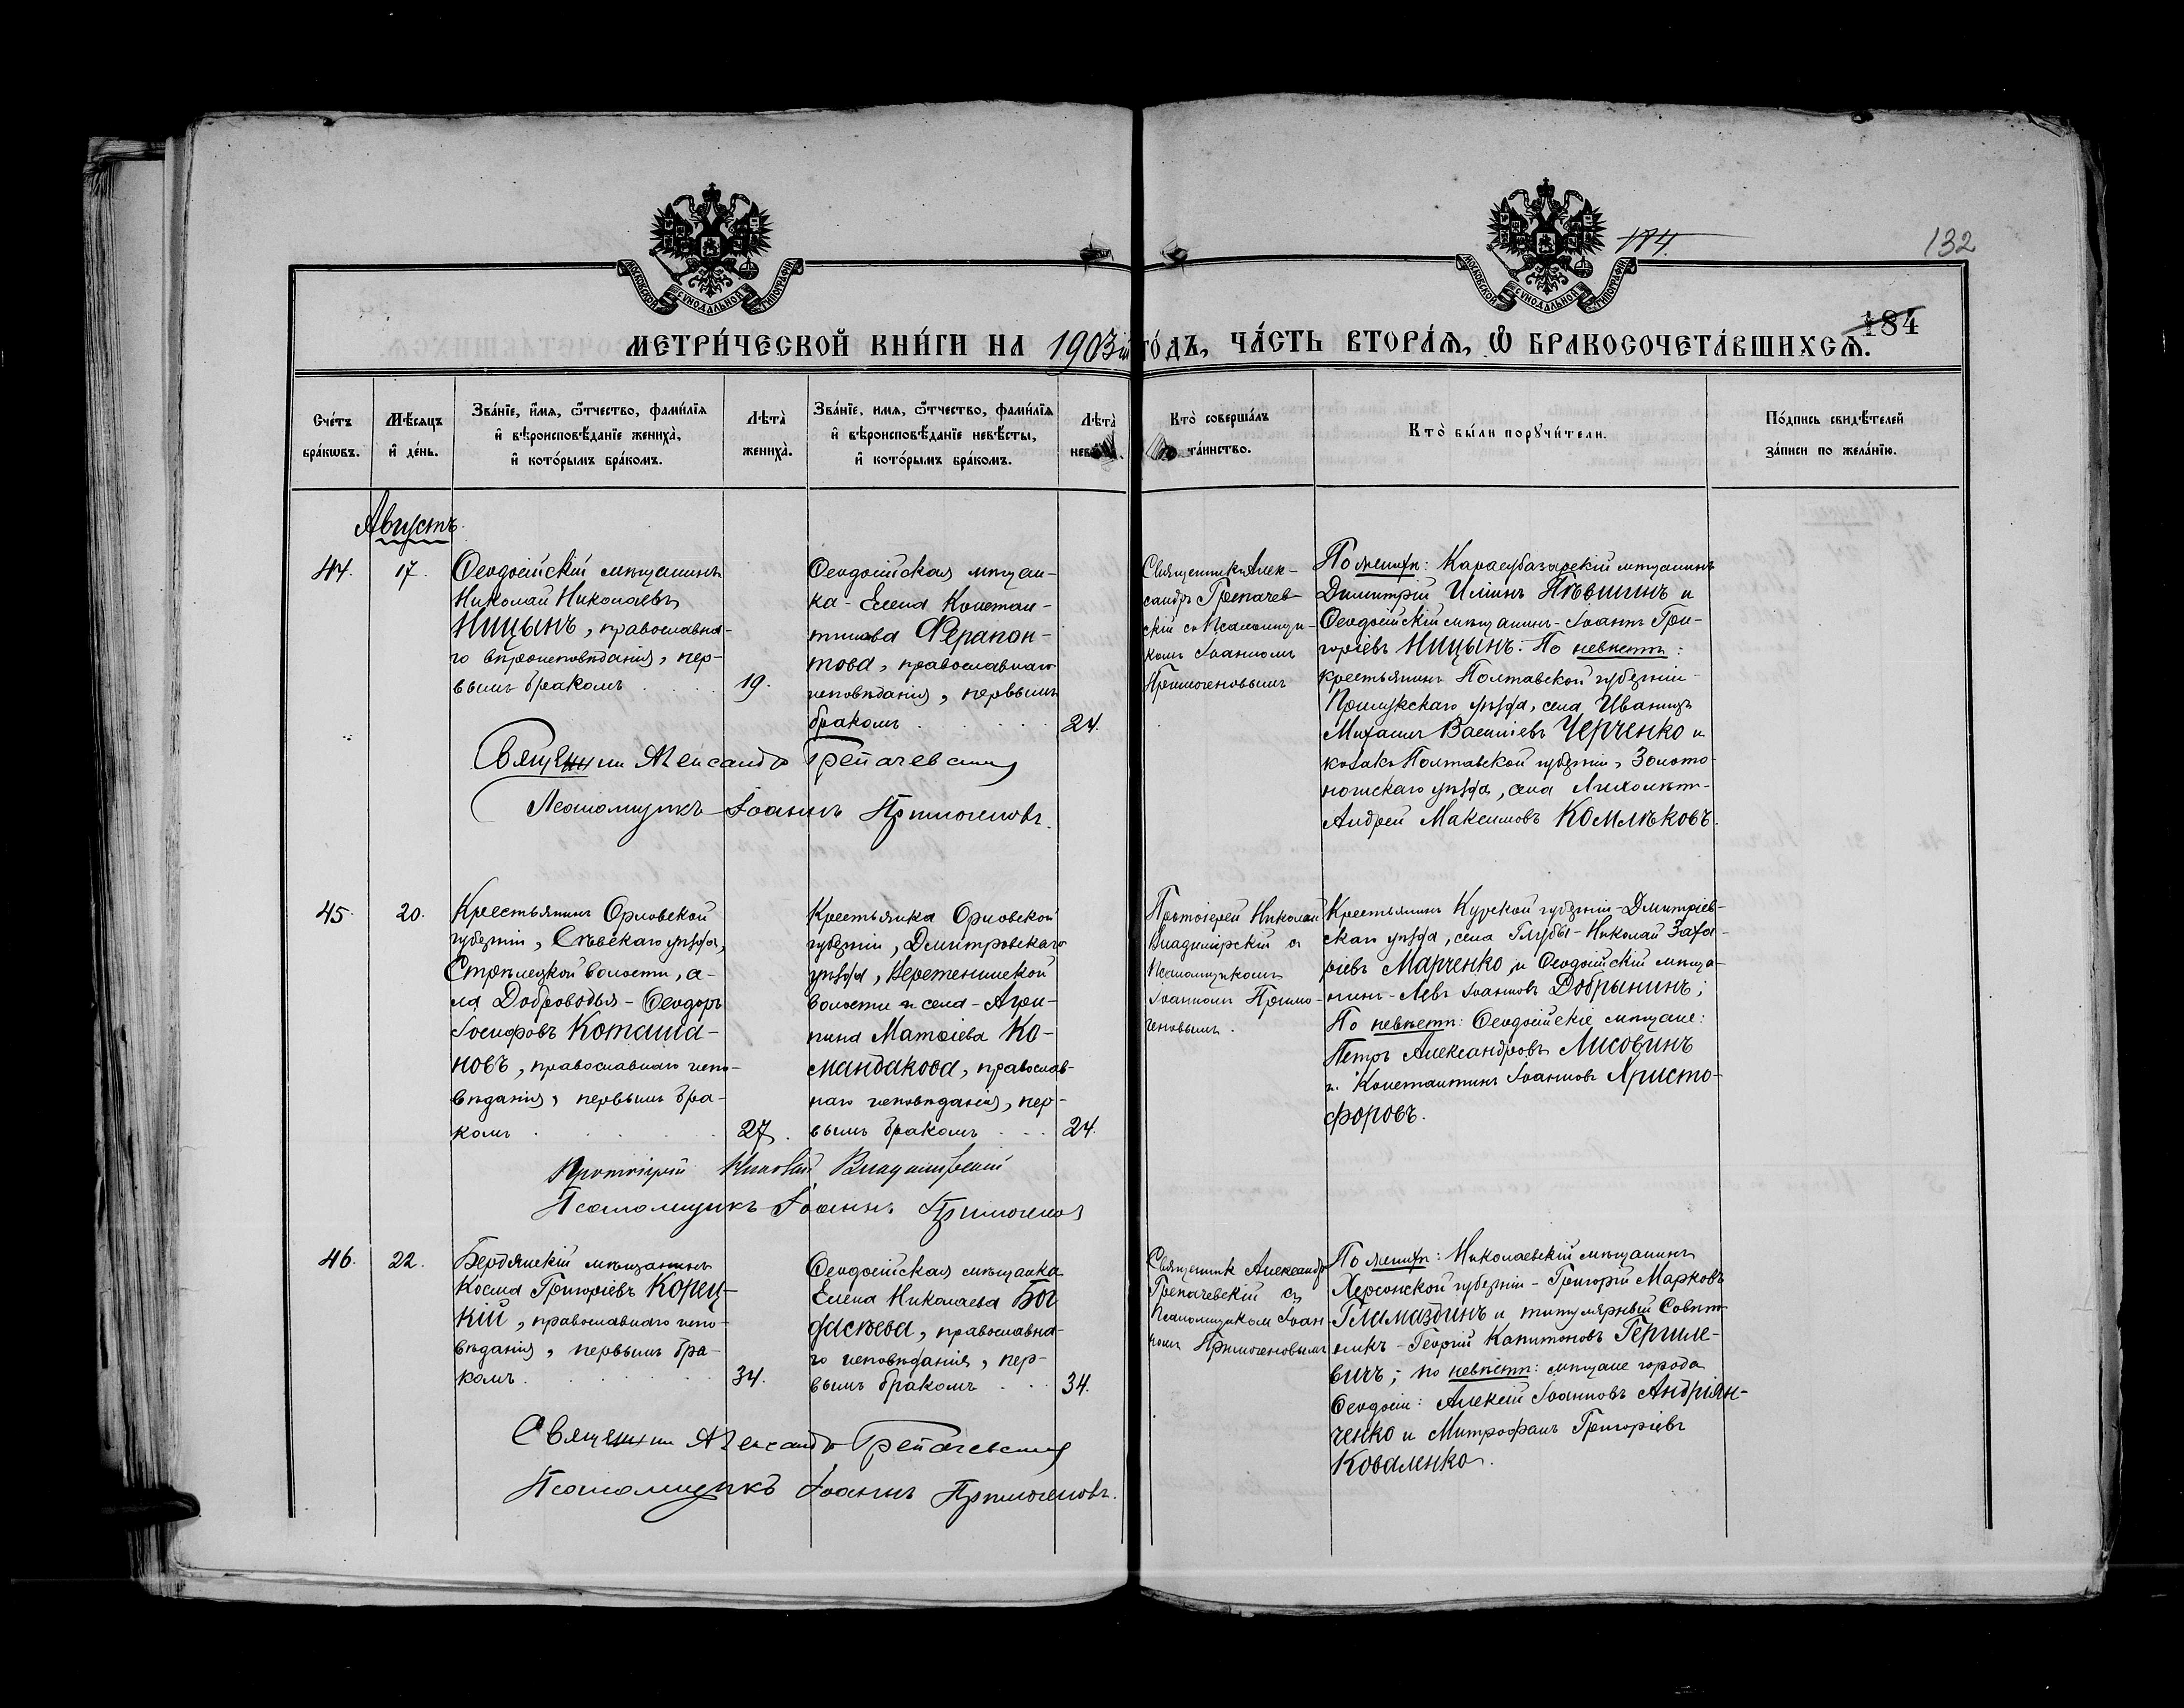 174
132
184
МОСКОВСКОЙ СѴНОДАЛЬНОЙ ТИПОГРАФІИ
МОСКОВСКОЙ СѴНОДАЛЬНОЙ ТИПОГРАФІИ
МЕТРИ́ЧЕСКОЙ КНИ́ГИ НА 1903й го́дъ, ЧА́СТЬ ВТОРА́Я, Ѽ БРАКОСОЧЕТА́ВШИХСѦ.
Сче́тъ бра́кѡвъ.
Мѣ́сяцъ и҆ де́нь.
Зва́нїе, и҆́мѧ, ѻ҆́тчество, фами́лїѧ
и҆ вѣроисповѣ́данїе жениха̀,
и҆ кото́рымъ бра́комъ.
Лѣта̀ жениха̀.
Зва́нїе, имѧ, ѻ҆́тчество, фами́лїѧ
и҆ вѣроисповѣ́данїе невѣ́сты,
и҆ кото́рымъ бра́комъ.
Лѣта̀
Кто̀ соверша́лъ
та́инство.
Кто̀ бы́ли порꙋчи́тели.
По́дпись свидѣ́телей
за́писи по жела́нїю.
Августъ.
44.
17.
Ѳеодосійскій мѣщанинъ
Николай Николаевъ
Ницынъ, православна-
го вѣроисповѣданія, пер-
вымъ бракомъ
19.
Ѳеодосійская мѣщан-
ка - Елена Констан-
тинова Ферапон-
това, православнаго
исповѣданія, первымъ
бракомъ
24.
Священникъ Алек-
сандръ Трепачев-
скій съ Псаломщи-
комъ Іоанномъ
Примогеновымъ
По женихѣ: Карасубазарскій мѣщанинъ
Димитрій Ильинъ Пѣвшинъ и
Ѳеодосійскій мѣщанинъ - Іоаннъ Гри-
горіевъ Ницынъ: По невѣстѣ:
крестьянинъ Полтавской губерніи
Прилукскаго уѣзда, села Иваницъ
Михаилъ Василіевъ Черченко и
козакъ Полтавской губерніи, Золото-
ношскаго уѣзда, села
Андрей Максимовъ Комлѣковъ.
Священникъ Александръ Трепачевскій
Псаломщикъ Іоаннъ Примогеновъ.
45.
20.
Крестьянинъ Орловской
губерніи, Сѣвскаго уѣзда,
Стрѣлецкой волости, с-
ла Доброводья - Ѳеодоръ
Іосифовъ Коташа-
новъ, православнаго испо-
вѣданія, первымъ бра-
комъ
27.
Крестьянка Орловской
губерніи, Дмитровскаго
уѣзда, Веретенинской
волости и села - Агри-
пина Матѳіева Ко-
мандакова, православ-
наго исповѣданія, пер-
вымъ бракомъ
24.
Протоіерей Николай
Владимірскій съ
Псаломщикомъ
Іоанномъ Примо-
геновымъ.
Крестьянинъ Курской губерніи - Дмитріев-
скаго уѣзда, села - Николай Заха-
ріевъ Марченко, и Ѳеодосійскій мѣща-
нинъ - Левъ Іоанновъ Добрынинъ;
По невѣстѣ: Ѳеодосійскіе мѣщане:
Петръ Александровъ Лисовинъ
и Константинъ Іоанновъ Христо-
форовъ.
Протоіерей Николай Владимірскій
Псаломщикъ Іоаннъ Примогеновъ
46.
22.
Бердянскій мѣщанинъ
Косма Григоріевъ Корец-
кій, православнаго испо-
вѣданія, первымъ бра-
комъ
34.
Ѳеодосійская мѣщанка
Елена Николаева
православна-
го исповѣданія, пер-
вымъ бракомъ
34.
Священник Александръ
Трепачевскій съ
Псаломщиком Іоан-
номъ Примогеновымъ
По женихѣ: Николаевскій мѣщанинъ
Херсонской губерніи - Григорій Марковъ
Гламаздинъ и титулярный Совѣт-
никъ - Георгій Капитоновъ Гершле-
вичъ; по невѣстѣ: мѣщане города
Ѳеодосіи: Алексій Іоанновъ Андріян-
ченко и Митрофанъ Григоріевъ
Коваленко.
Священникъ Александръ Трепачевскій
Псаломщикъ Іоаннъ Примогеновъ.